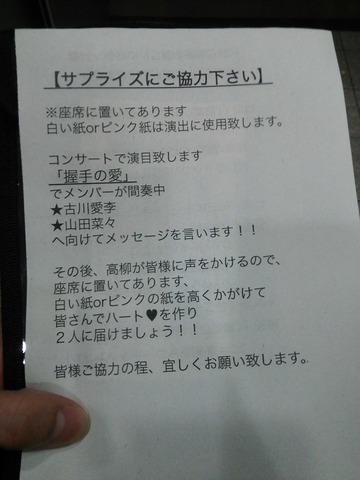 【サプライズにご協力下さい】
※座席に置いてあります
白い紙orピンク紙は演出に使用致します。
コンサートで演目致します
「握手の愛」
でメンバーが間奏中
★古川愛李
★山田菜々
へ向けてメッセージを言います！！
その後、高柳が皆様に声をかけるので、
座席に置いてあります、
白い紙orピンクの紙を高くかがけて
皆さんでハート♥を作り
２人に届けましょう！！
皆様ご協力の程、宜しくお願い致します。